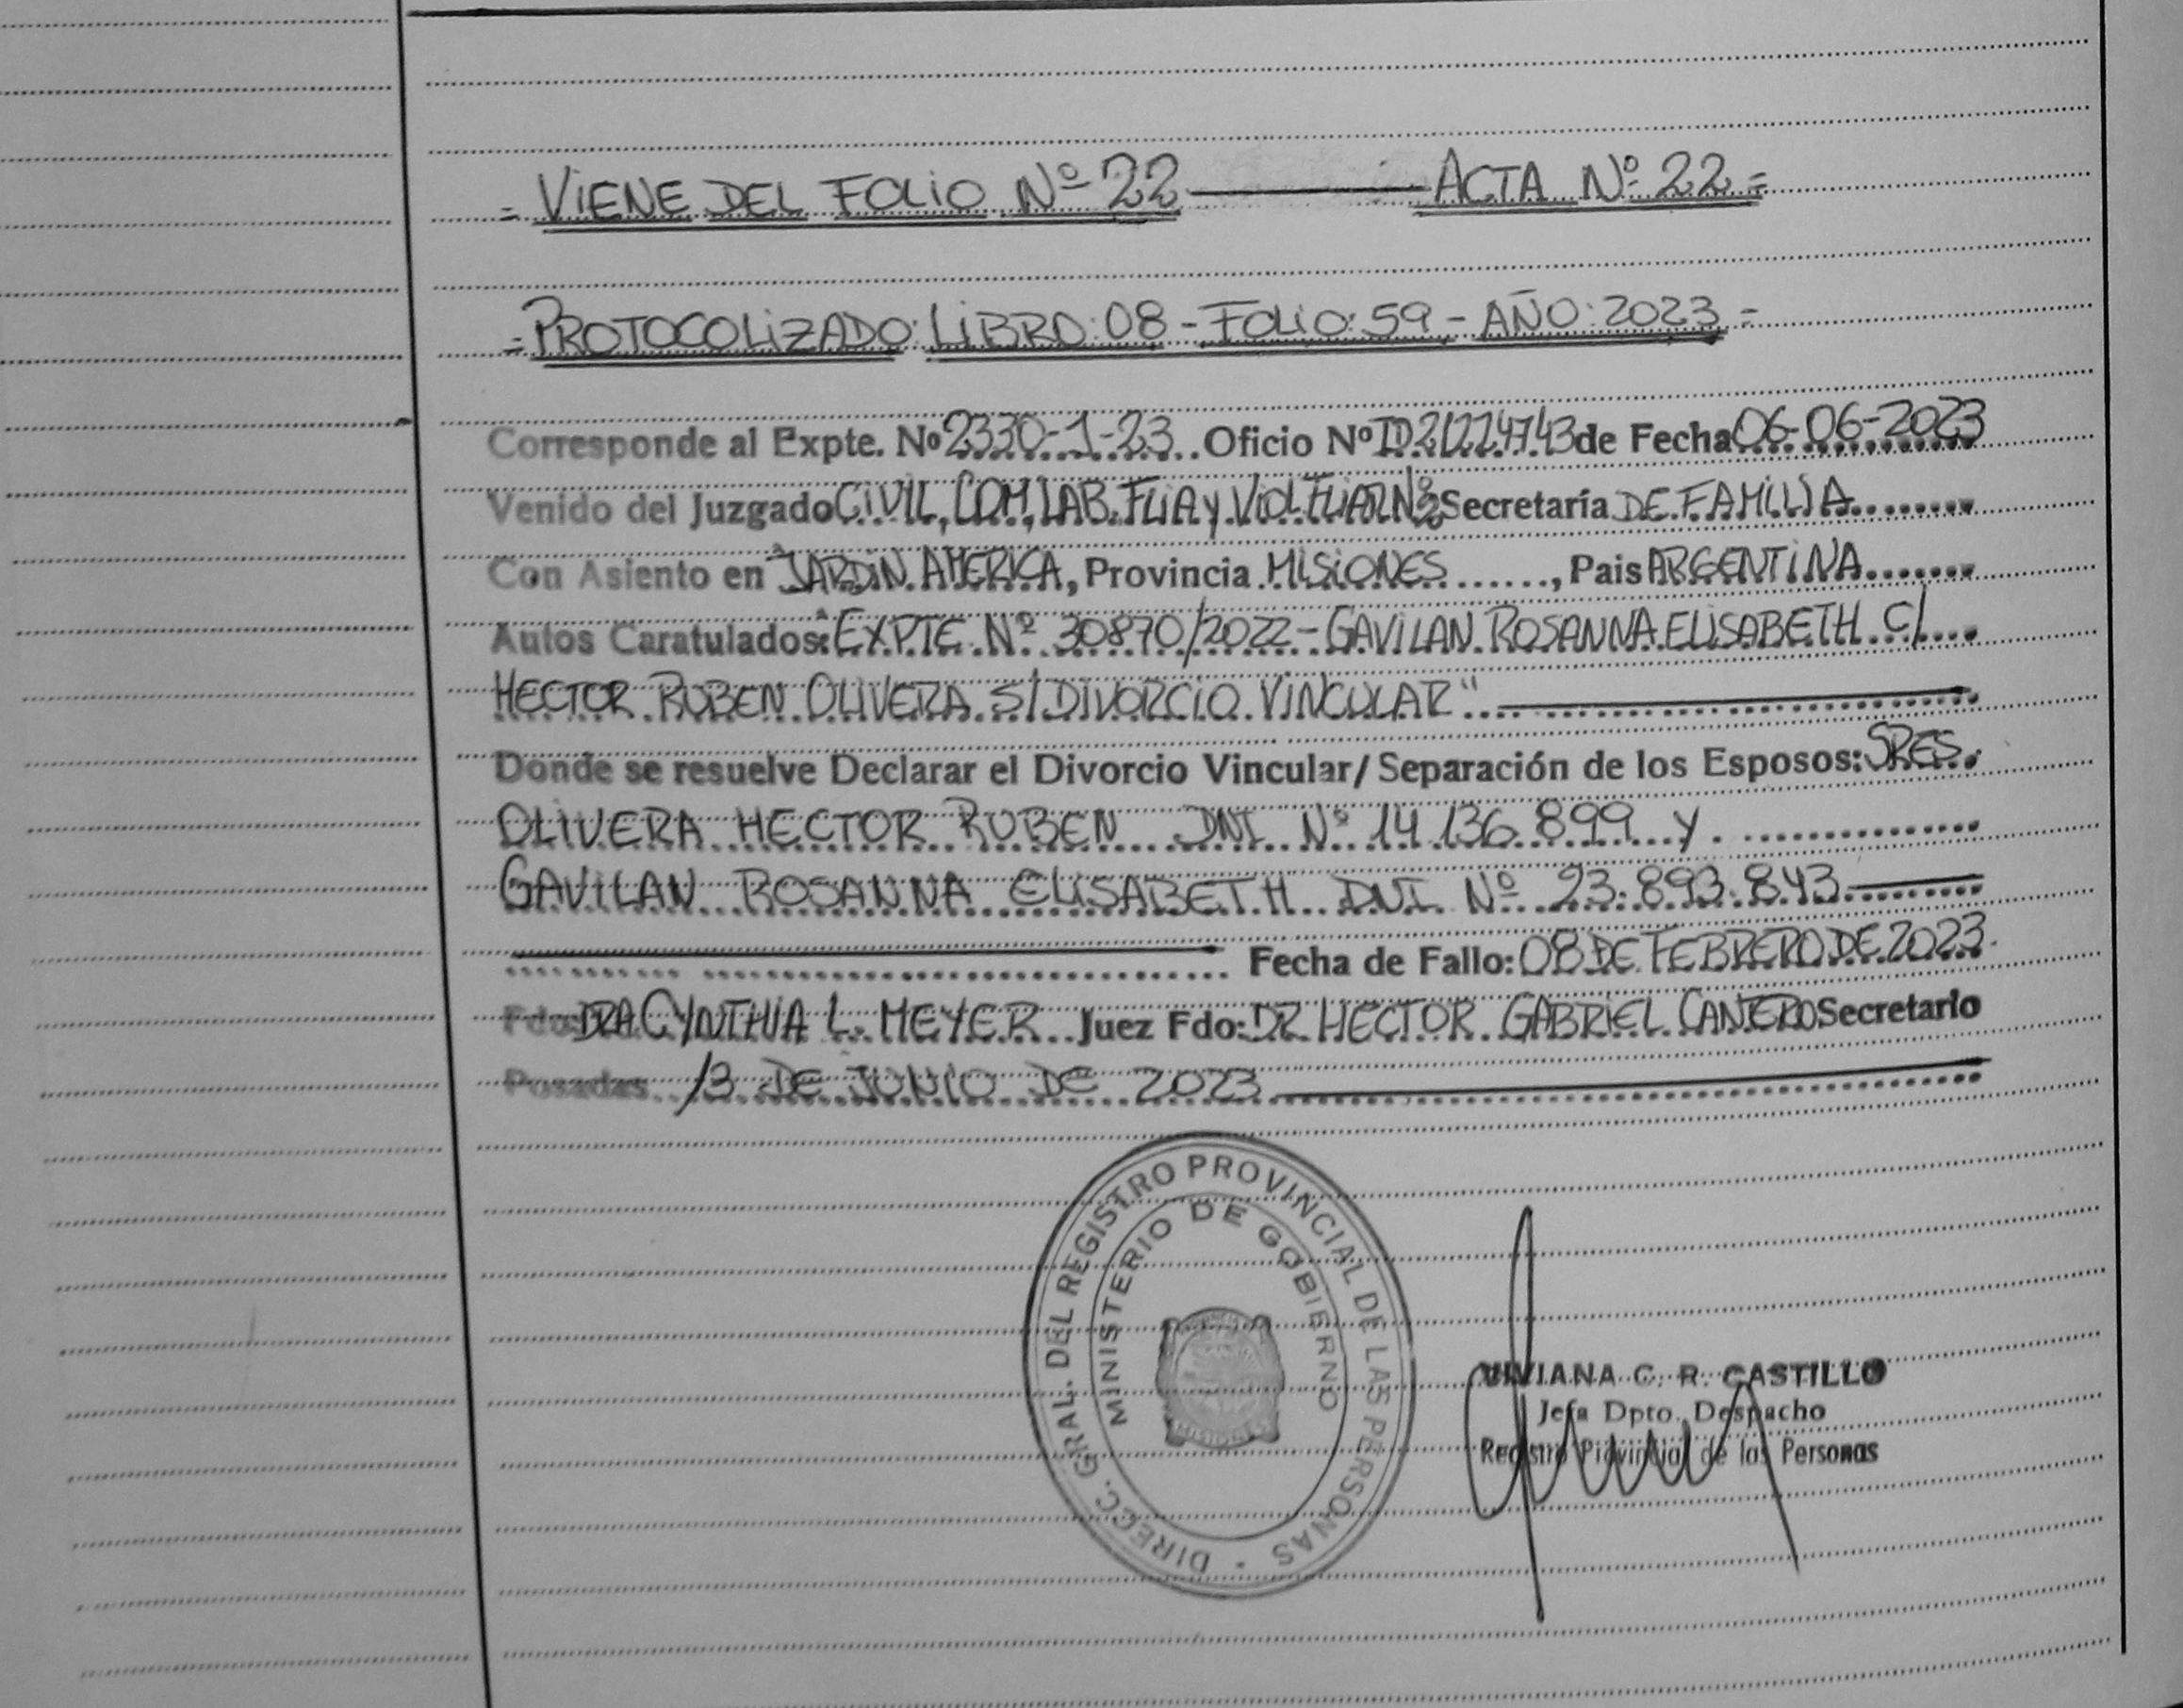 = VIENE DEL FOLIO Nº 22 ——— ACTA Nº 22 =
= PROTOCOLIZADO: LIBRO: 08 - FOLIO: 59 - AÑO: 2023 =
Corresponde al Expte. Nº 2330-1-23. Oficio Nº ID 21224743 de Fecha 06-06-2023
Venido del Juzgado CIVIL, COM, LAB. FLIA y VIOL FLIAR Nº2 Secretaría DE FAMILIA
Con Asiento en JARDIN AMERICA, Provincia MISIONES, Pais ARGENTINA
Autos Caratulados: "EXPTE Nº 30870/2022 - GAVILAN ROSANNA ELISABETH C/
HECTOR RUBEN OLIVERA S/ DIVORCIO VINCULAR"
Donde se resuelve Declarar el Divorcio Vincular/ Separación de los Esposos: SRES.
OLIVERA HECTOR RUBEN DNI Nº 14.136.899 y
GAVILAN ROSANNA ELISABETH DNI Nº 23.893.843
Fecha de Fallo: 08 DE FEBRERO DE 2023.
Fdo: DRA CYNTHIA L. MEYER Juez Fdo: DR HECTOR GABRIEL CANTERO Secretario
Posadas 13 DE JUNIO DE 2023
DIREC. GRAL. DEL REGISTRO PROVINCIAL DE LAS PERSONAS -
MINISTERIO DE GOBIERNO
MISIONES
VIVIANA C. R. CASTILLO
Jefa Dpto. Despacho
Registro Provincial de las Personas